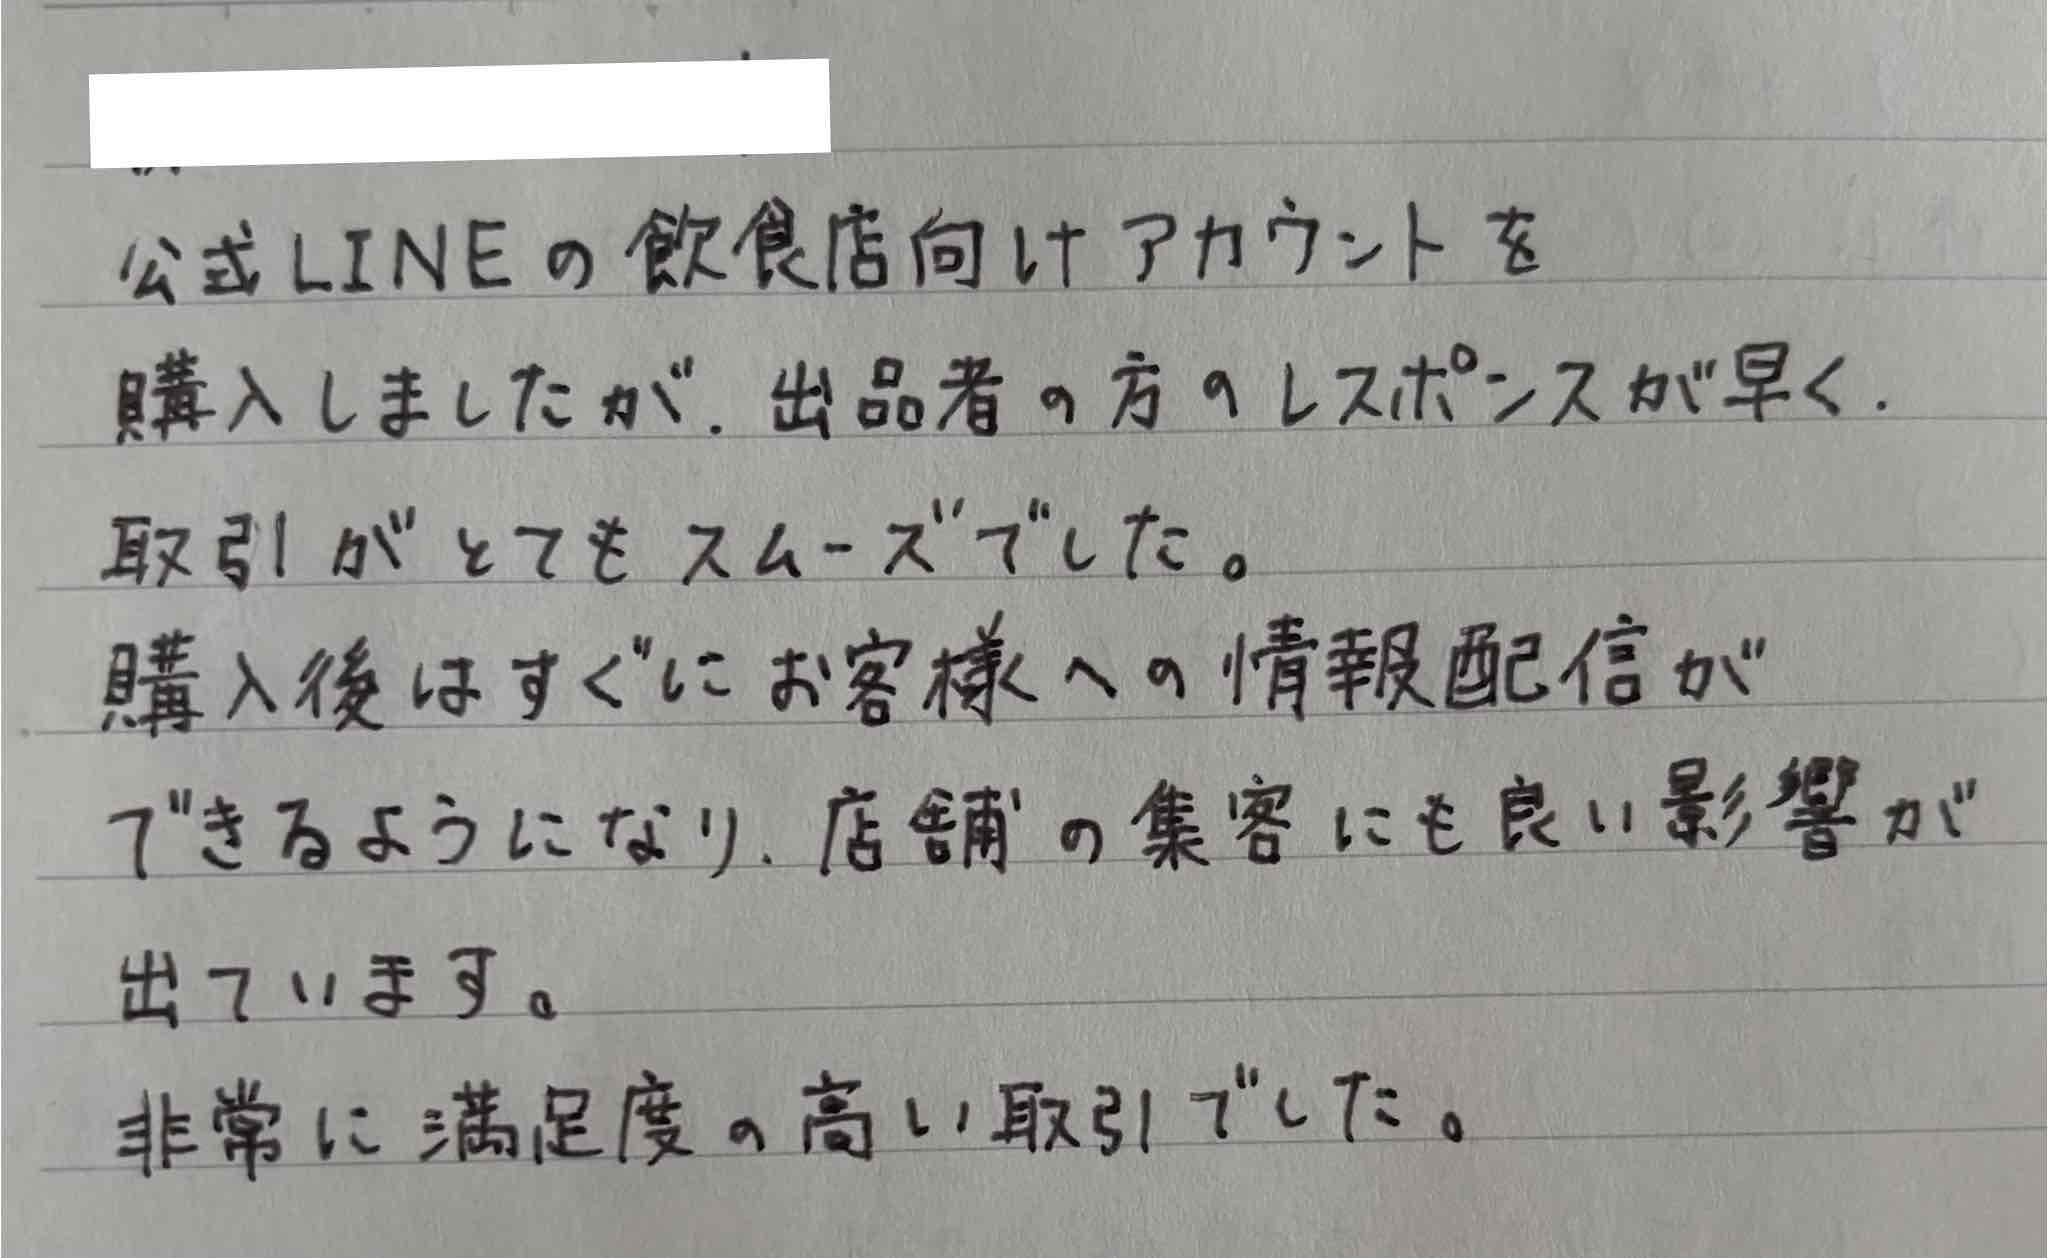 公式LINEの飲食店向けアカウントを
購入しましたが、出品者の方のレスポンスが早く、
取引がとてもスムーズでした。
購入後はすぐにお客様への情報配信が
できるようになり、店舗の集客にも良い影響が
出ています。
非常に満足度の高い取引でした。